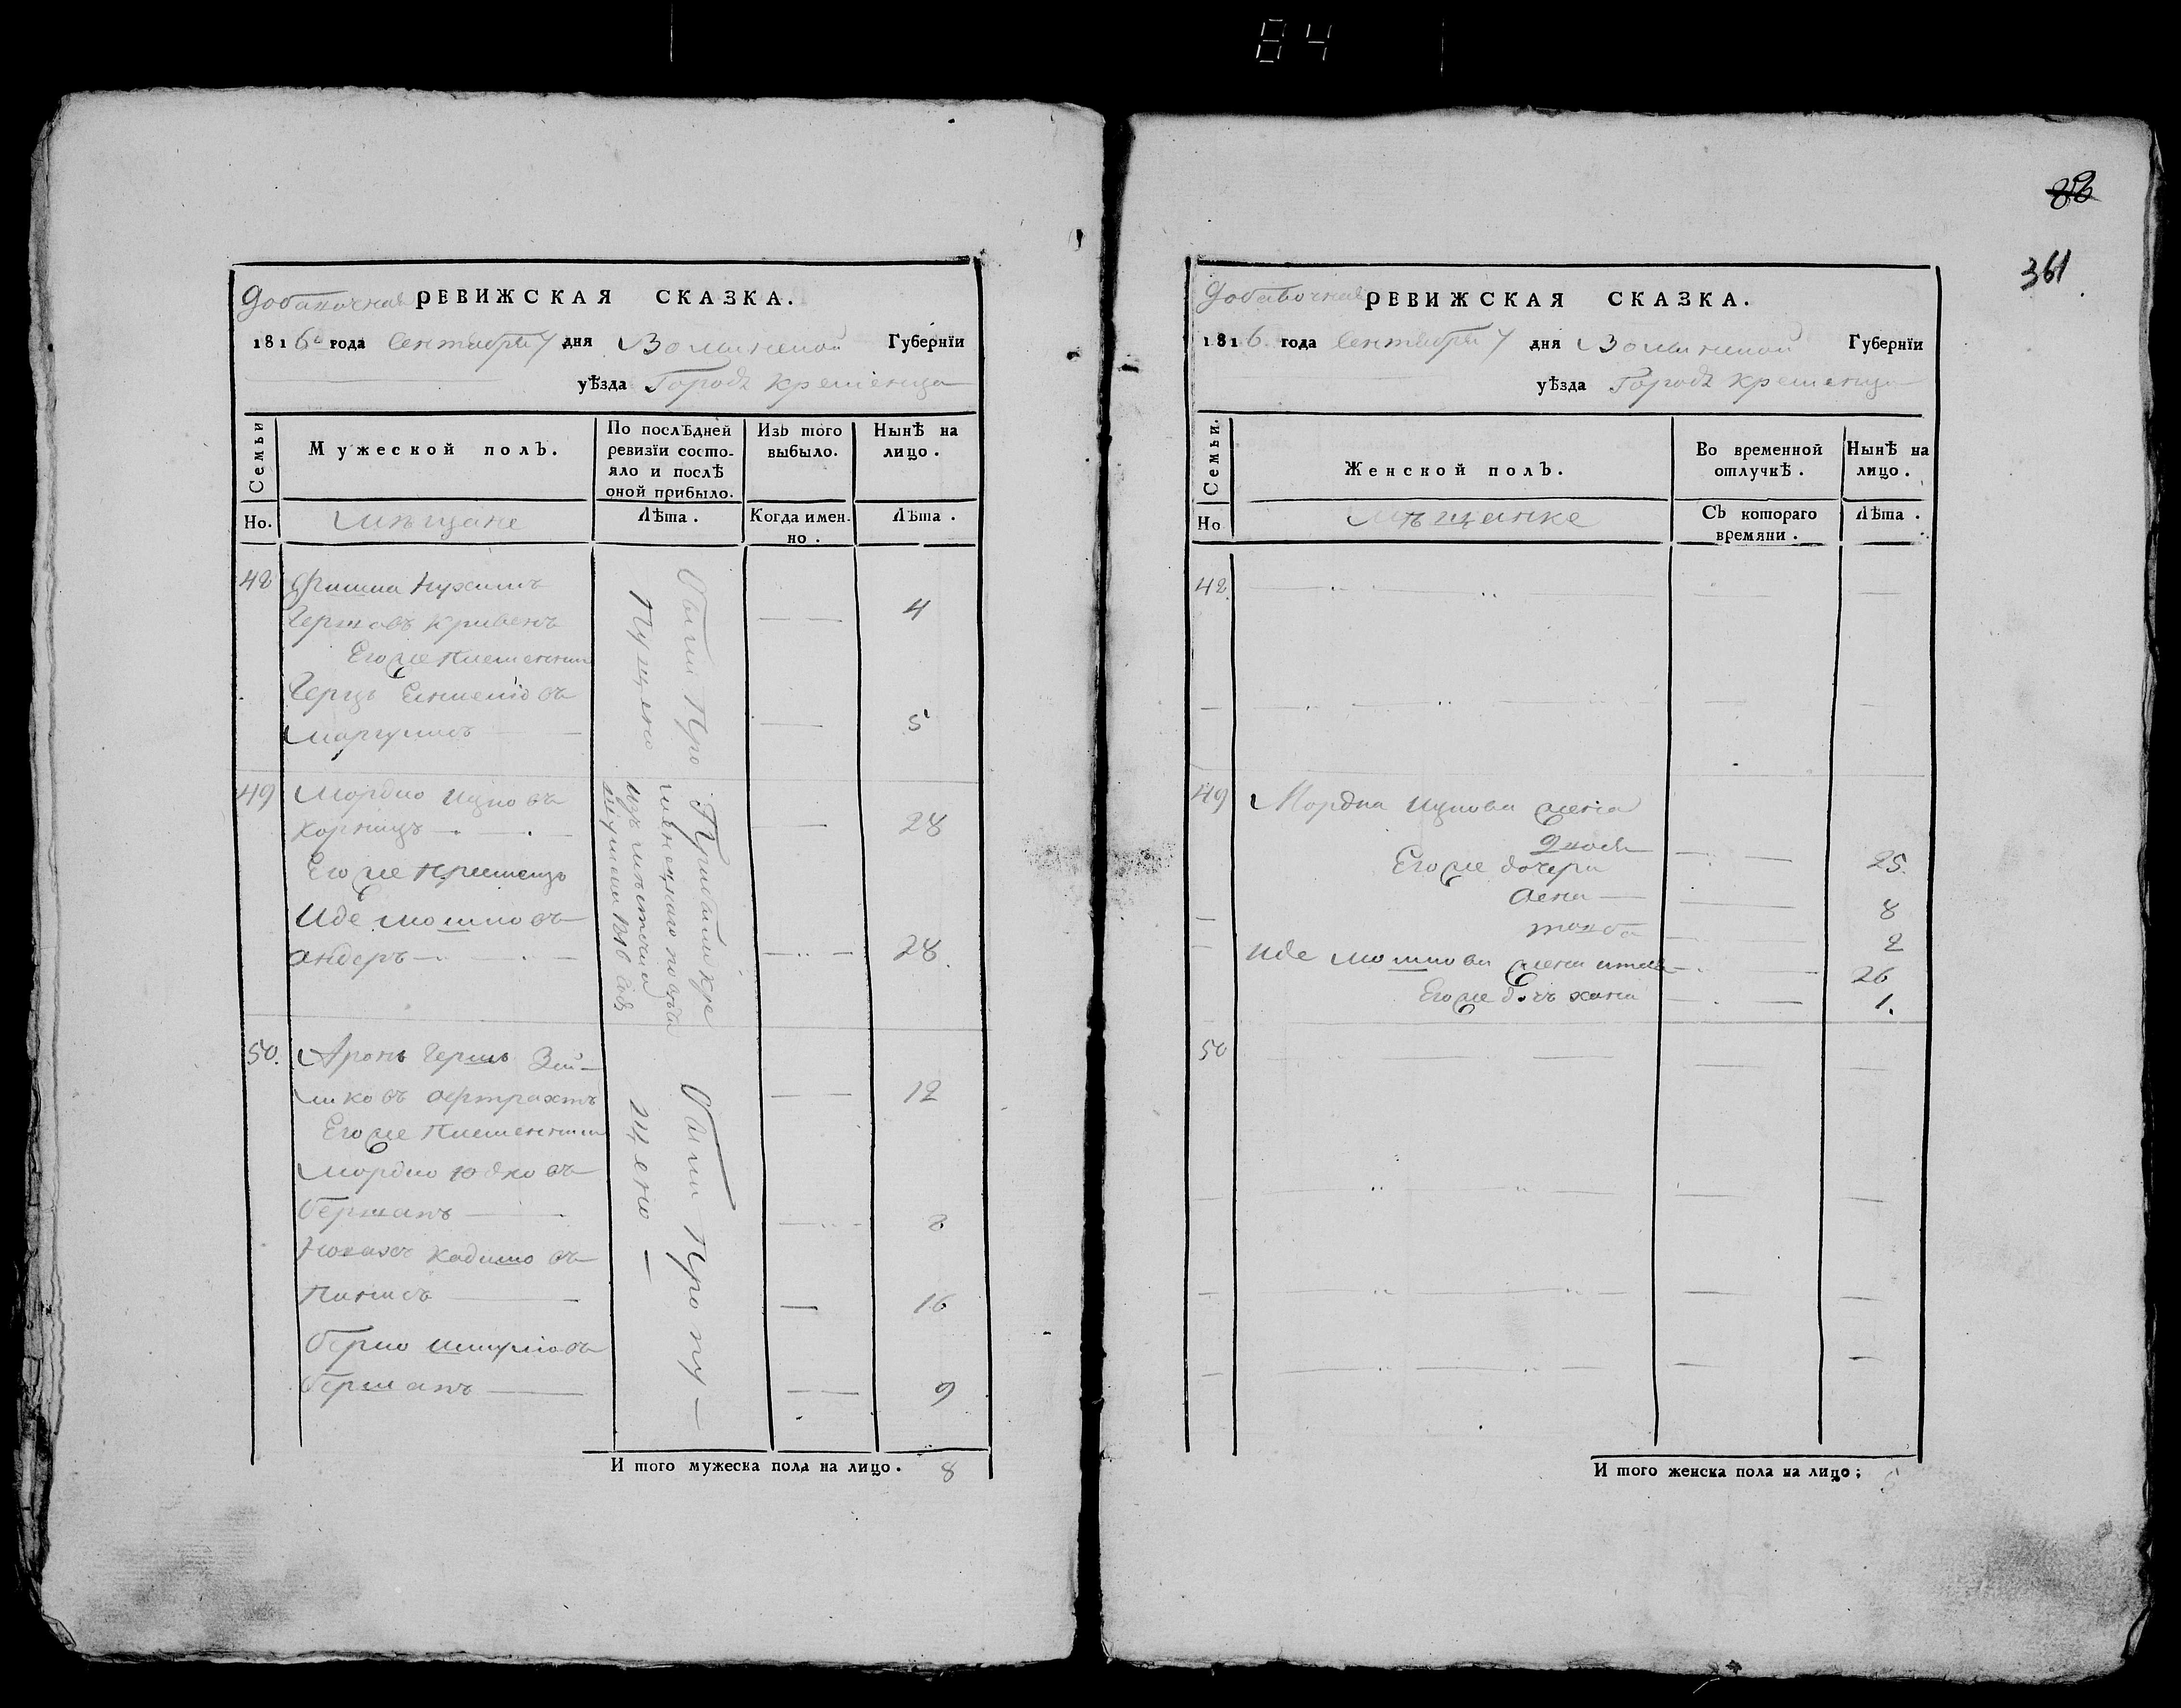 84
Добавочная РЕВИЖСКАЯ СКАЗКА.
1816го года Сентября 7 дня Волынской Губернїи
уѣзда Городъ Кременца
Семьи
Мужеской полъ.
По послѣдней ревизїи состояло и послѣ оной прибыло.
Изъ того выбыло.
Нынѣ на лицо.
Но.
Мѣщане
Лѣта.
Когда имен-
но.
Лѣта.
48
Гершовъ Кривенъ
4
Его же племенник
Герцъ
Маргулисъ
5
Были Про
пущено
49 Мордко Ицковъ
Корницъ
28
Его же
Иде Мошковъ
Андеръ
28
Прибыли Кре
менецкаго повѣта
изъ мѣстечка
50. Аронъ Гершъ Зей-
12
Его же племенники
Мордко Юдковъ
Германъ
Кадишовъ
Пинисъ
16
Берко Шмулиовъ
Германъ
9
Были Пропу-
щено
И того мужеска пола на лицо. 8
86
361
Добавочная РЕВИЖСКАЯ СКАЗКА.
1816 года Сентября 7 дня Волынской Губернїи
уѣзда Городъ Кременца
Семьи.
Женской полъ.
Во временной отлучкѣ.
Нынѣ на лицо.
Но
Мѣщанке
Съ котораго времяни.
Лѣта.
48.
49 Мордка Ицкова жена
Двося
25.
Его же дочери
8
Тоуба
2
Иде Мошкова жена
26
Его же дочь Хана
1.
50
И того женска пола на лицо; 5